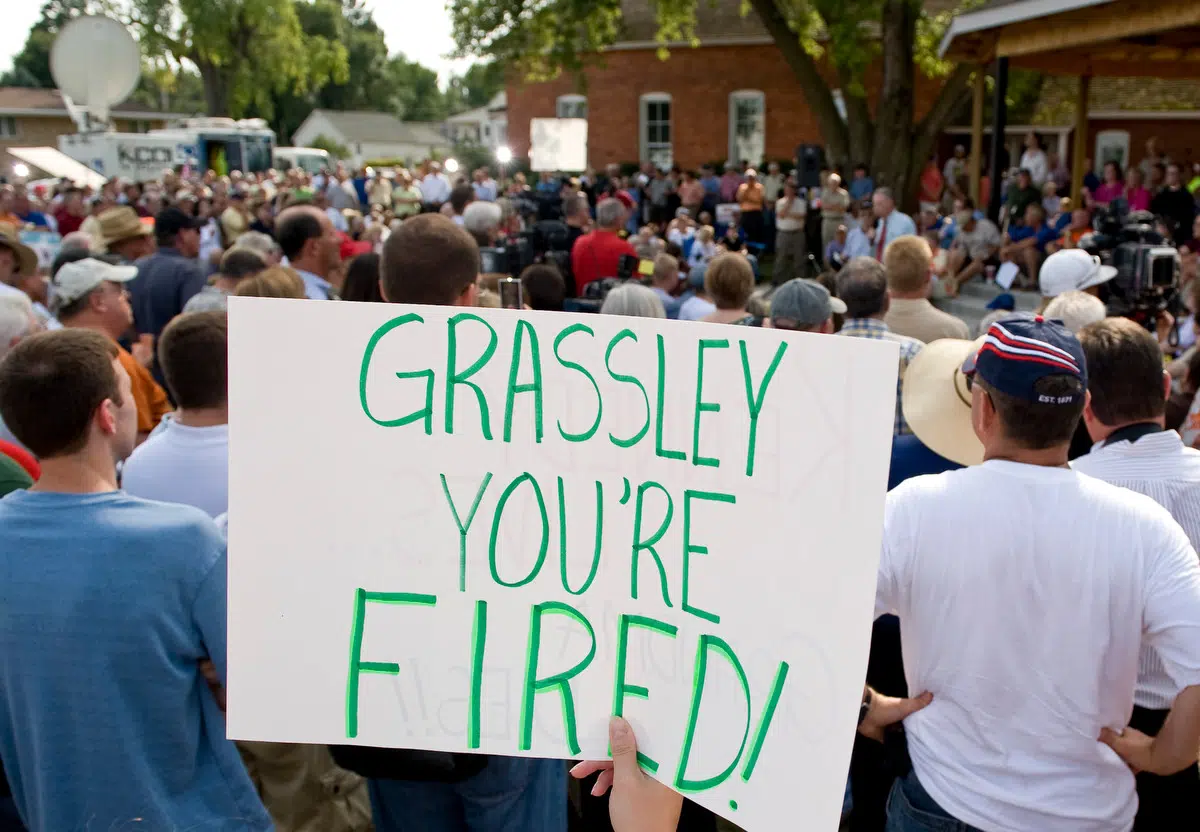 KCCI
GRASSLEY
YOU'RE
FIRED!
EST. 1871